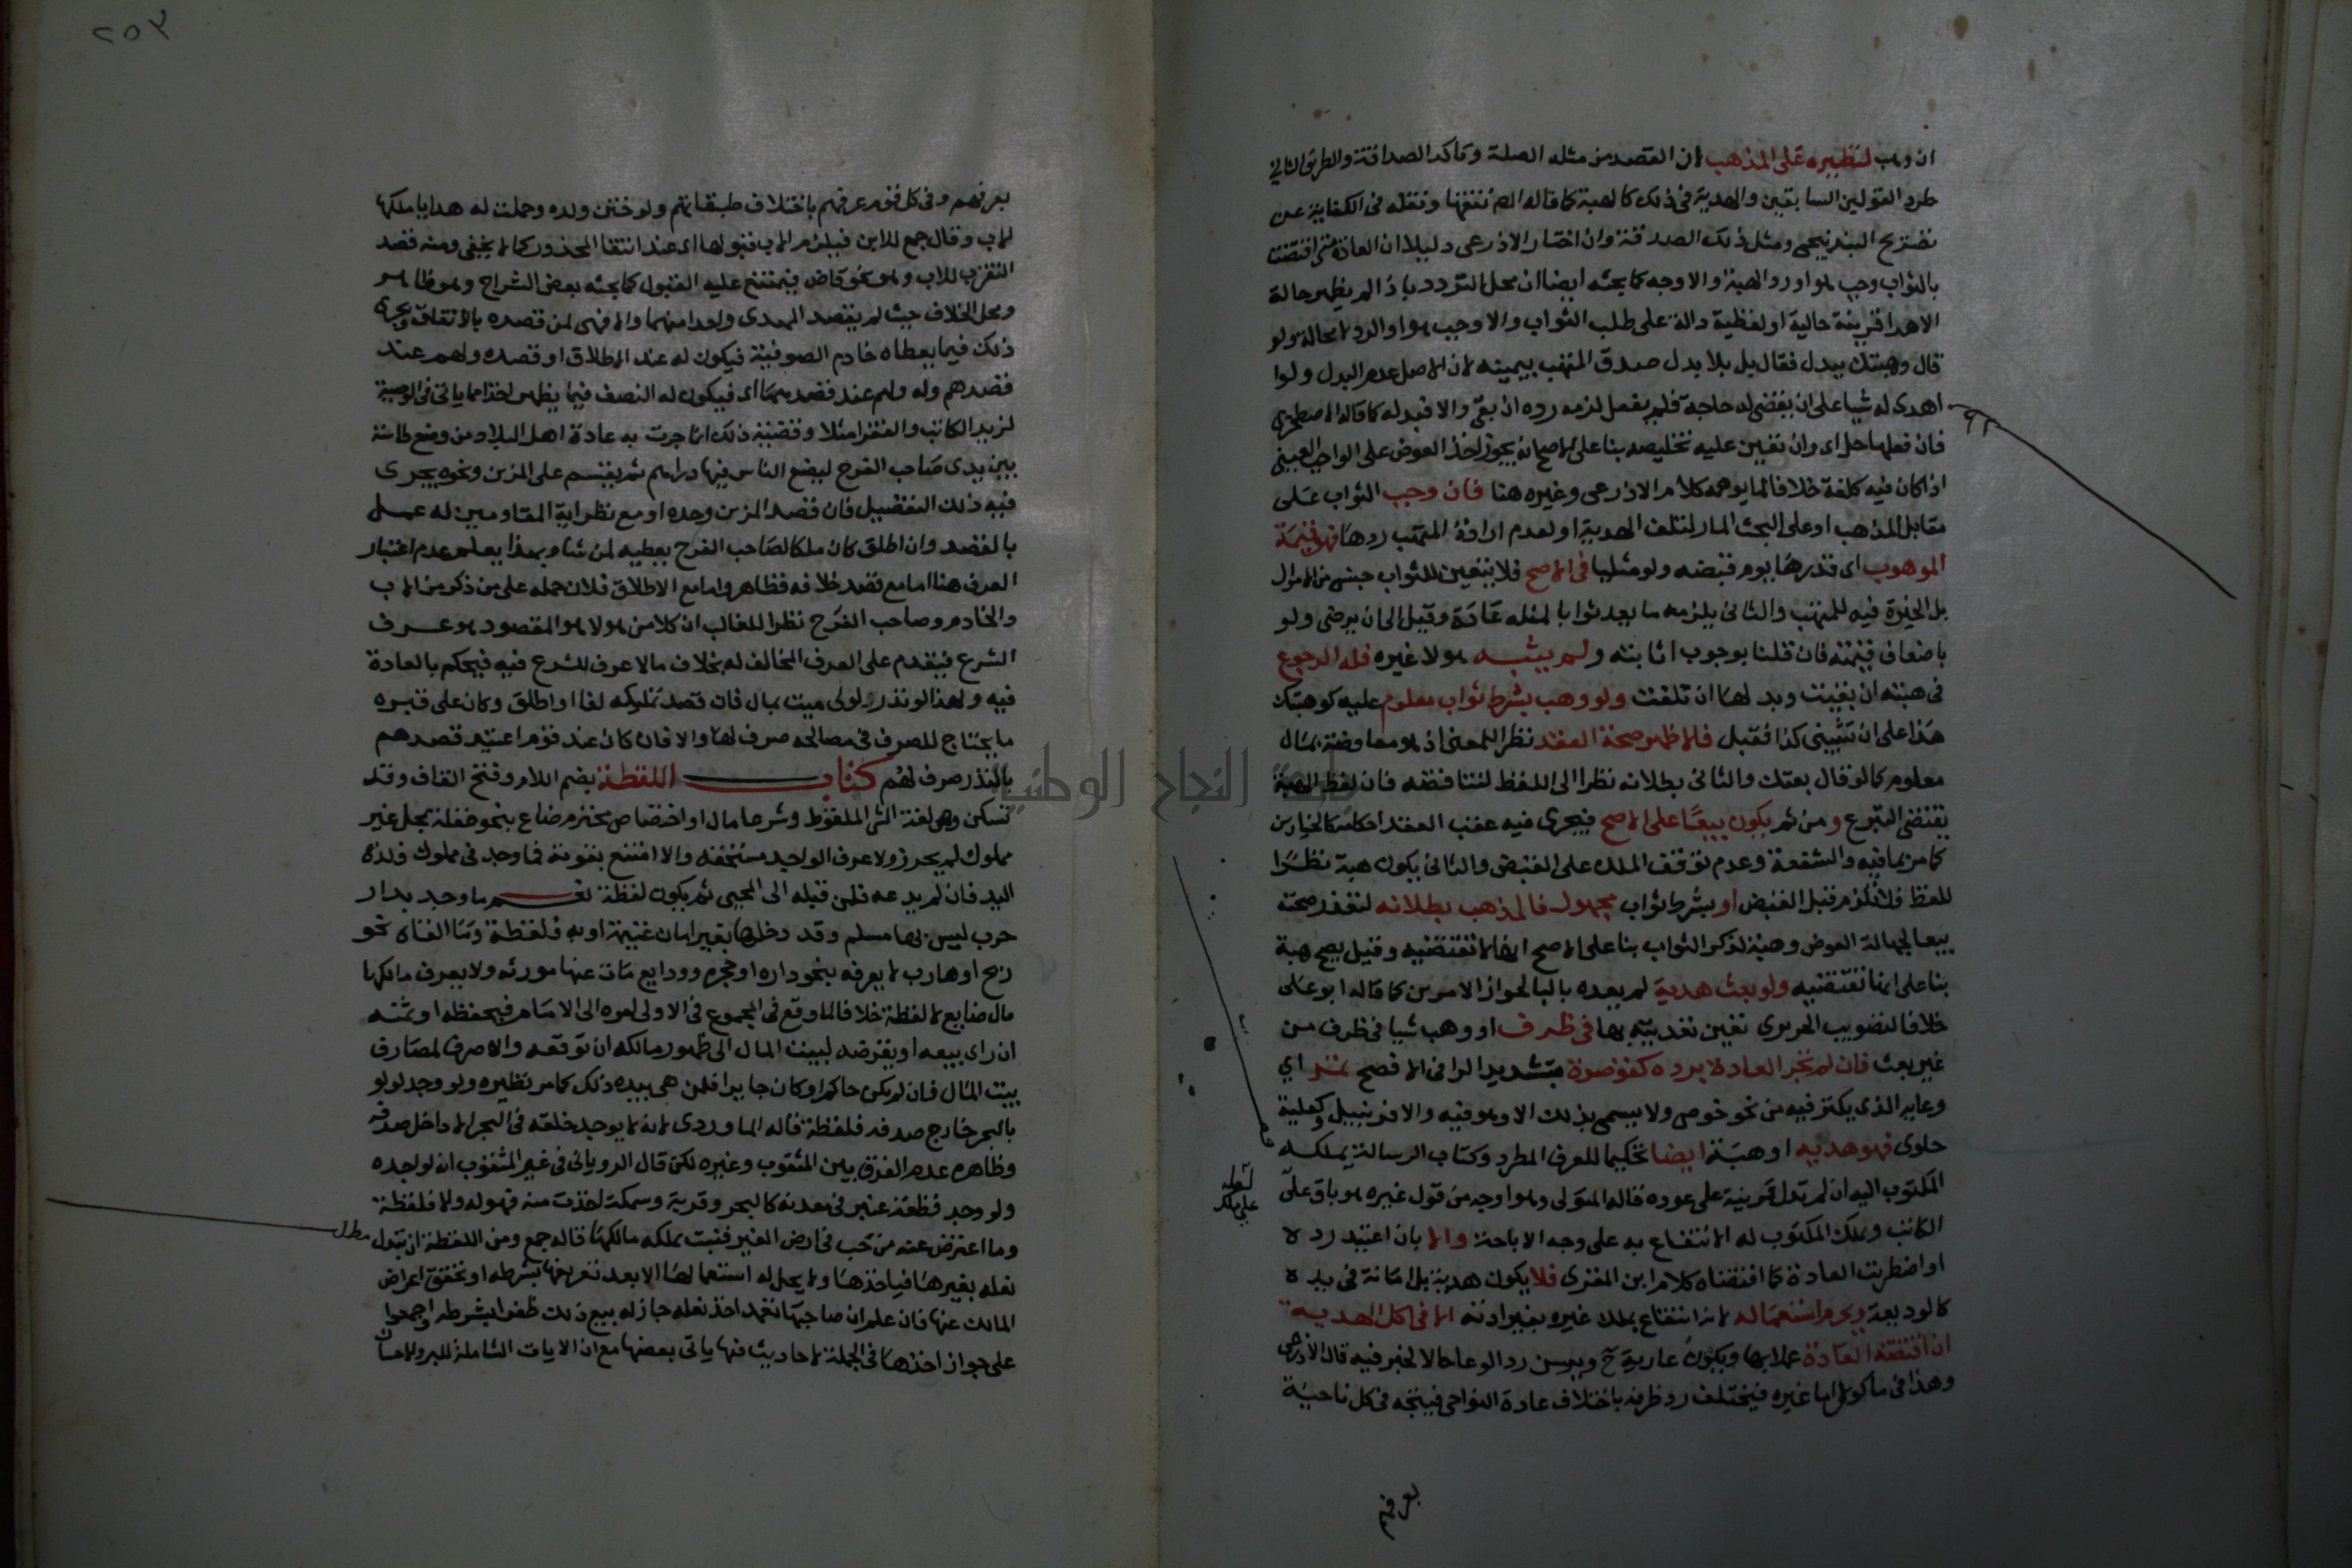 ان وهب لنظيره على المذهب لان القصد من مثله الصلة وتاكد الصداقة والطريق الثاني
طرد القولين السابقين والهدية في ذلك كالهبة كما قاله الم تفقها ونقله في الكفاية عن
تصريح البندنيجي ومثل ذلك الصدقة وان اختار الاذرعي دليلا ان العادة متى اقتضت
بالثواب وجب هو او رد الهبة والاوجه كما بحثه ايضا ان محل التردد ما اذا لم يظهر حالة
الاهدا قرينة حالية او لفظية دالة على طلب الثواب والا وجب هو او الرد لا محالة ولو
قال وهبتك ببدل فقال بل بلا بدل صدق المتهب بيمينه لان الاصل عدم البدل ولو
اهدى له شيا على ان يقضي له حاجة فلم يفعل لزمه رده ان بقي والا فبدله كما قاله الاصطخري
فان فعلها حل اى وان تعين عليه تخليصه بنا على الاصح انه يجوز اخذ العوض على الواجب العيني
اذا كان فيه كلفة خلافا لما يوهمه كلام الاذرعي وغيره هنا فان وجب الثواب على
مقابل المذهب او على البحث المار لتلف الهدية او لعدم ارادة المتهب ردها فهو قيمة
الموهوب اى قدرها يوم قبضه ولو مثليا في الاصح فلا يتعين للثواب جنس من الاموال
بل الخيرة فيه للمتهب والثاني يلزمه ما يعد ثوابا لمثله عادة وقيل الى ان يرضى ولو
باضعاف قيمته فان قلنا بوجوب اثابته ولم يثبه هو ولا غيره فله الرجوع
في هبته ان بقيت وبدلها ان تلفت ولو وهب بشرط ثواب معلوم عليه كوهبتك
هذا على ان تثيبني كذا فقبل فالاظهر صحة العقد نظرا للمعنى اذ هو معاوضة بمال
معلوم كما لو قال بعتك والثاني بطلانه نظرا الى اللفظ لتناقضه فان لفظ الهبة
يقتضي التبرع ومن ثم يكون بيعا على الاصح فيجرى فيه عقب العقد احكامه كالخيارين
كما مر بما فيه والشفعة وعدم توقف الملك على القبض والثاني يكون هبة نظرا
للفظ فلا تلزم قبل القبض او بشرط ثواب مجهول فالمذهب بطلانه لتعذر صحته
بيعا لجهالة العوض وهبة لذكر الثواب بنا على الاصح انها لا تقتضيه وقيل يصح هبة
بنا على انها تقتضيه ولو بعث هدية لم يعده بالبا لجواز الامرين كما قاله ابو على
خلافا لتصويب الحريري تعين تعديته بها في ظرف او وهب شيا في ظرف من
غير بعث فان لم تجر العادة برده كقوصرة بتشديد الرا في الافصح تمر اي
وعايه الذي يكنز فيه من نحو خوص ولا يسمى بذلك الا وهو فيه والا فزنبيل وكعلبة
حلوى فهو هدية او هبة ايضا تحكيما للعرف المطرد وكتاب الرسالة يملكه
المكتوب اليه ان لم تدل قرينة على عوده قاله المتولى وهو اوجه من قول غيره هو باق على
الكاتب ويملك المكتوب له الانتفاع به على وجه الاباحة والا بان اعتيد رده
او اضطربت العادة كما اقتضاه كلام ابن المقري فلا يكون هدية بل امانة في يده
كالوديعة ويحرم استعماله لانه انتفاع بملك غيره بغير اذنه الا في اكل الهدية
ان اقتضته العادة عملا بها ويكون عارية ح ويسن رد الوعا حالا لخبر فيه قال الاذرعي
وهذا في ماكول اما غيره فيختلف رد ظرفه باختلاف عادة النواحي فيتجه في كل ناحية
بعرفهم
٢٥٣
بعرفهم وفي كل قوم عرفهم باختلاف طبقاتهم ولو ختن ولده وحملت له هدايا ملكها
الاب وقال جمع للابن فيلزم الاب قبولها اى عند انتقا المحذور كما لا يخفى ومنه قصد
التقرب للاب وهو نحو قاض فيمتنع عليه القبول كما بحثه بعض الشراح وهو ظاهر
ومحل الخلاف حيث لم يقصد المهدى واحدا منهما والا فهى لمن قصده بالاتفاق ويجرى
ذلك فيما يعطاه خادم الصوفية فيكون له عند الاطلاق او قصده ولهم عند
قصدهم وله ولهم عند قصدهما اى فيكون له النصف فيما يظهر اخذا مما ياتى في الوصية
لزيد الكاتب والفقرا مثلا وقضية ذلك ان ما جرت به عادة اهل البلاد من وضع طاسة
بين يدى صاحب الفرح ليضع الناس فيها دراهم ثم يقسم على المزين ونحوه يجرى
فيه ذلك التفصيل فان قصد المزين وحده او مع نظرايه المقاومين له عمل
بالقصد وان اطلق كان ملكا لصاحب الفرح يعطيه لمن شا وبهذا يعلم عدم اعتبار
العرف هنا اما مع قصد خلافه فظاهر واما مع الاطلاق فلان حمله على من ذكر من الاب
والخادم وصاحب الفرح نظرا للغالب ان كلا من هولا هو المقصود هو عرف
الشرع فيقدم على العرف المخالف له بخلاف ما لا عرف للشرع فيه فيحكم بالعادة
فيه ولهذا لو نذر لولى ميت بمال فان قصد تمليكه لغا او اطلق وكان على قبره
ما يحتاج للصرف في مصالحه صرف لها والا فان كان عنده قوم اعتيد قصدهم
بالنذر صرف لهم كتاب اللقطة بضم اللام وفتح القاف وقد
تسكن وهى لغة الشى الملقوط وشرعا مال او اختصاص محترم ضاع بنحو غفلة بمحل غير
مملوك لم يحرز ولا عرف الواجد مستحقه ولا امتنع بقوته فما وجد في مملوك فلذى
اليد فان لم يدعه فلمن قبله الى المحيى ثم يكون لقطة نعم ما وجد بدار
حرب ليس بها مسلم وقد دخلها بغير امان غنيمة او به فلقطة وما القاه نحو
ريح او هارب لا يعرفه بنحو داره او حجره وودايع مات عنها مورثه ولا يعرف مالكها
مال ضايع لا لقطة خلافا لما وقع في المجموع في الاولى امره الى الامام فيحفظه او ثمنه
ان راى بيعه او يقرضه لبيت المال الى ظهور مالكه ان توقعه والا صرف لمصارف
بيت المال فان لم يكن حاكم او كان جايرا فلمن هى بيده ذلك كما مر نظيره ولو وجد لولو
بالبحر خارج صدفه فلقطة قاله الماوردى لانه لا يوجد خلقة في البحر الا داخل صدفه
وظاهره عدم الفرق بين المثقوب وغيره لكن قال الرويانى في غير المثقوب انه لواجده
ولو وجد قطعة عنبر في معدنه كالبحر وقربه وسمكة اخذت منه فهو له والا فلقطة
وما اعرض عنه من حب في ارض الغير فنبت يملكه مالكها قاله جمع ومن اللقطة ان تبدل
نعله بغيرها فياخذها ولا يحل له استعمالها الا بعد تعريفها بشرطه او تحقق اعراض
المالك عنها فان علم ان صاحبها تعمد اخذ نعله جاز له بيع ذلك ظفرا بشرطه واجمعوا
على جواز اخذها في الجملة لاحاديث فيها ياتى بعضها مع ان الايات الشاملة للبر والاحسان
مطل
جامعة النجاح الوطنية